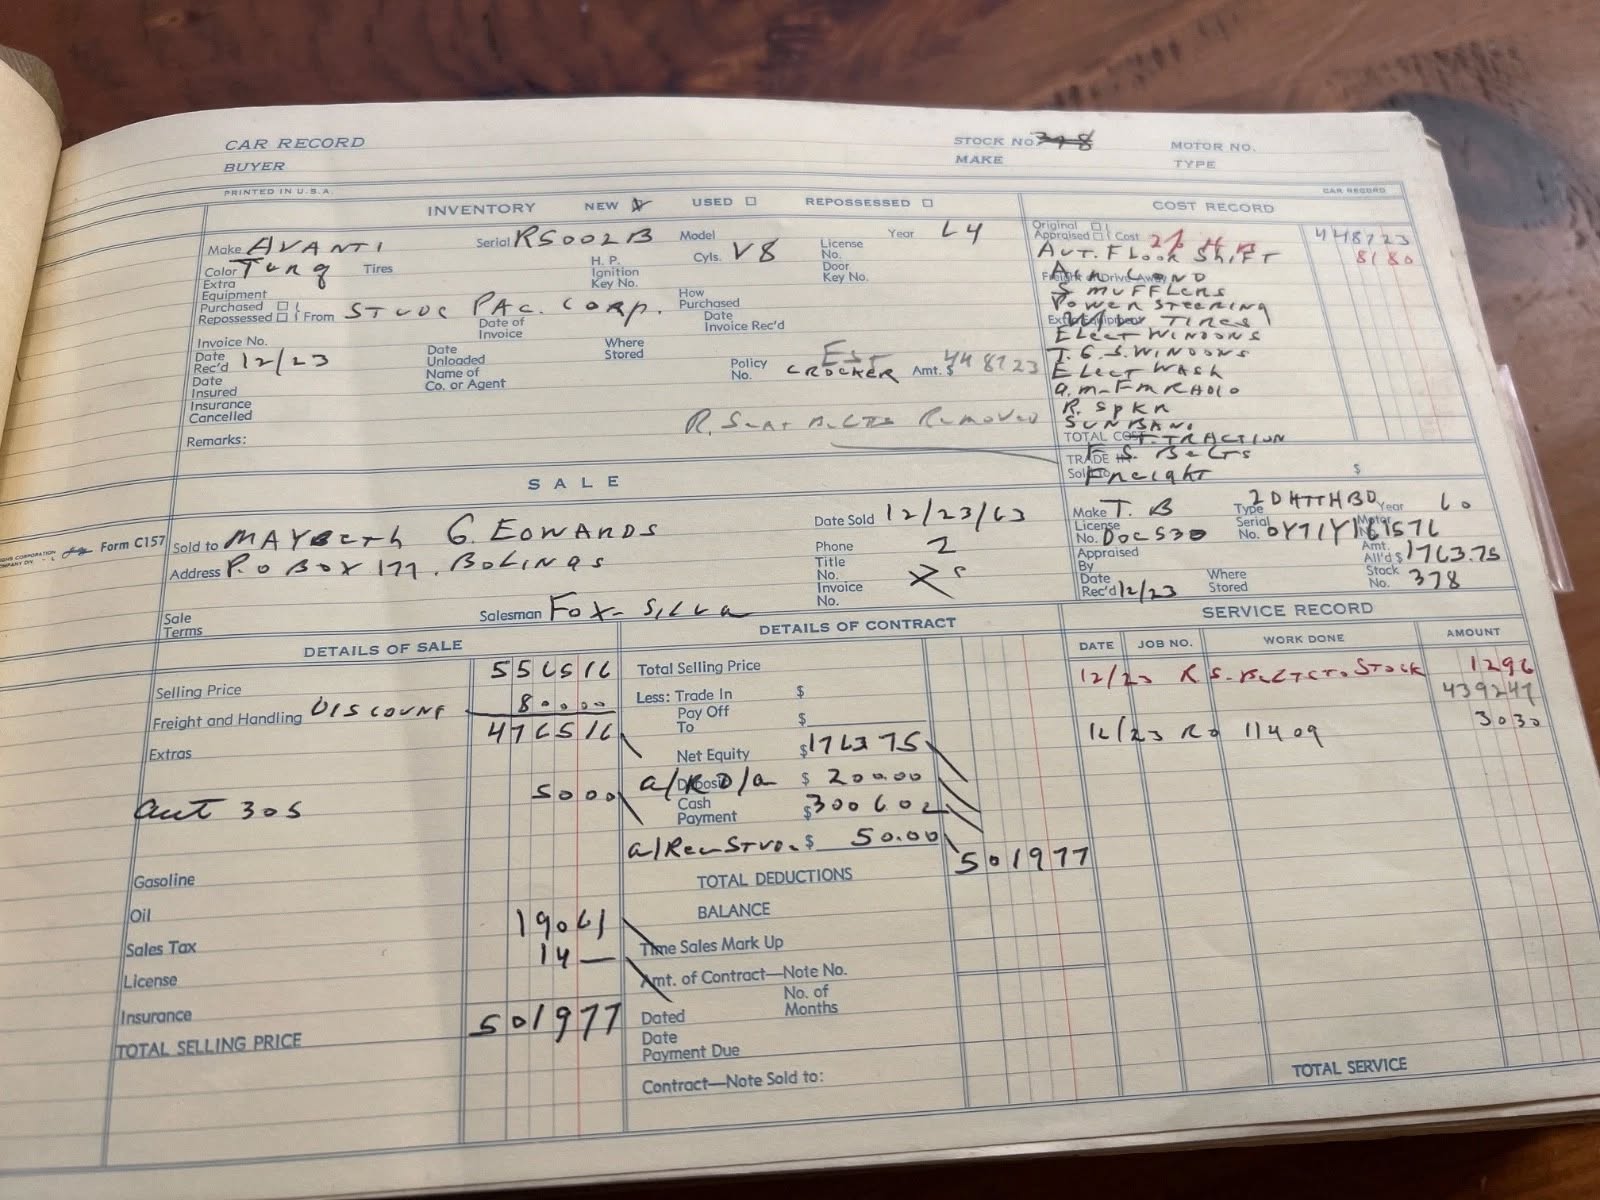 CAR RECORD
BUYER
STOCK NO. 378
MAKE
MOTOR NO.
TYPE
PRINTED IN U.S.A.
CAR RECORD
INVENTORY NEW USED REPOSSESSED
COST RECORD
Make AVANTI Serial RS002B Model Year 64
Color Turq Tires H. P. Cyls. V8 License No.
Extra Equipment Ignition Key No. Door Key No.
Purchased Repossessed From STUDE PAC. CORP. How Purchased
Invoice No. Date of Invoice Date Invoice Rec'd
Date Rec'd 12/23 Date Unloaded Where Stored
Date Insured Name of Co. or Agent Policy No. EST CROCKER Amt. $ 448723
Insurance Cancelled
Remarks: R. SEAT BELTS REMOVED
Original Appraised Cost 2% H B 448723
AUT. FLOOR SHIFT 8180
Freight or Drive Away
S MUFFLERS
POWER STEERING
Extra Equipment W/W TIRES
ELECT WINDOWS
T. G. S. WINDOWS
ELECT WASH
a.m-FM RADIO
R. SPKR
TOTAL COST T. TRACTION
TRADE IN F. S. BELTS
Sold To Freight $
SALE
Sold to MAYBETH G. EDWARDS Date Sold 12/23/63
Address P.O BOX 177. BOLINAS Phone 2
Title No.
Invoice No.
Sale Terms Salesman FOX-SILVA
Make T. B Type 2DHTTHBD Year 60
License No. DOC530 Serial No. 0Y71Y161576 Motor No.
Appraised By Amt. All'd $ 1763.75
Date Rec'd 12/23 Where Stored Stock No. 378
Form C157
DETAILS OF SALE
Selling Price 556516
Freight and Handling DISCOUNT 80000
Extras 476516
aut 305 5000
Gasoline
Oil
Sales Tax 19061
License 14—
Insurance
TOTAL SELLING PRICE 501977
DETAILS OF CONTRACT
Total Selling Price
Less: Trade In $
Pay Off To $
Net Equity $ 176375
a/R D/a Deposit $ 200.00
Cash Payment $ 300602
a/Rec STUD. $ 50.00
TOTAL DEDUCTIONS 501977
BALANCE
Time Sales Mark Up
Amt. of Contract—Note No.
Dated No. of Months
Date Payment Due
Contract—Note Sold to:
SERVICE RECORD
DATE JOB NO. WORK DONE AMOUNT
12/23 R S. BELTS TO STOCK 1296
439247
12/23 RO 11409 3030
TOTAL SERVICE